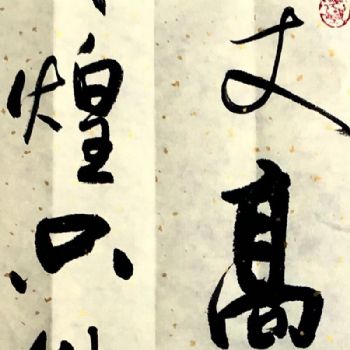 丈高
煌只